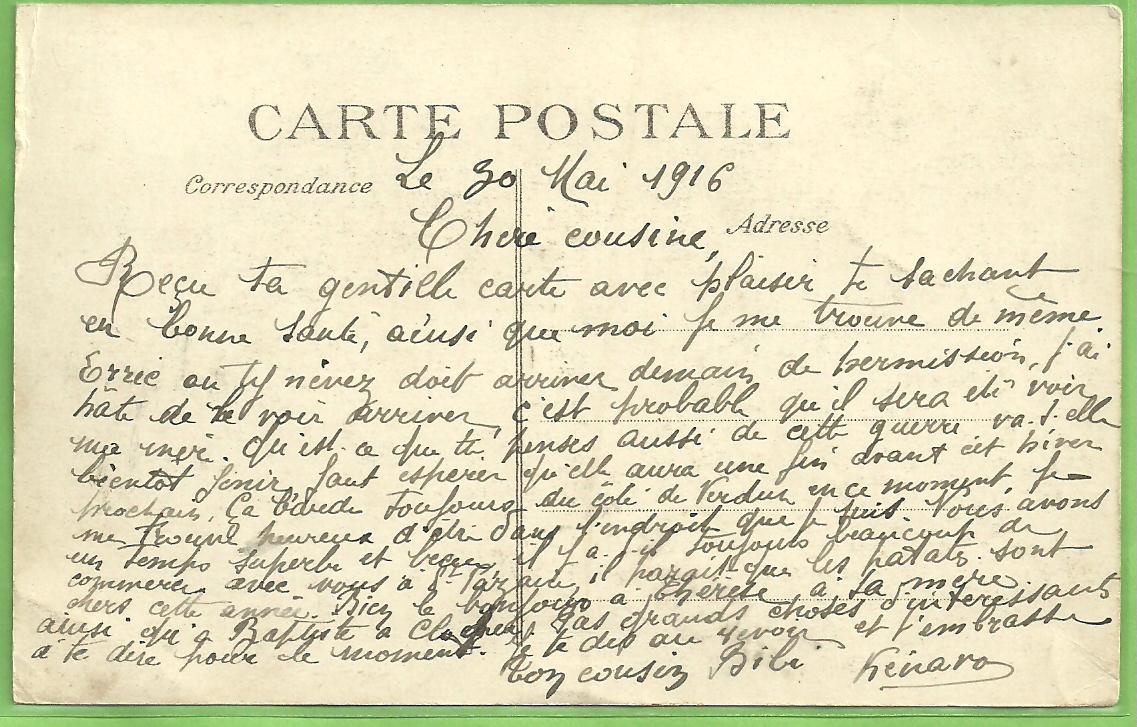 CARTE POSTALE
Correspondance
Adresse
Le 30 Mai 1916
Chère cousine,
Reçu ta gentille carte avec plaisir te sachant
en bonne santé, ainsi que moi je me trouve de même
doit arriver demain de permission, j'ai
hâte de le voir arriver, c'est probable qu'il sera été voir
ma mère. Qu'est-ce que tu penses aussi de cette guerre va-t-elle
bientôt finir, faut espérer qu'elle aura une fin avant cet hiver
prochain. Ça barde toujours du côté de Verdun en ce moment, je
me trouve heureux d'être dans l'endroit que je suis. Vous avons
un temps superbe et y a-t-il toujours beaucoup de
commerce avec vous à il paraît que les patates sont
chers cette année. Bien le bonjour à Thérèse à sa mère
ainsi qu'à Baptiste à pas grands choses d'intéressant
à te dire pour le moment. Je te dis au revoir et t'embrasse
Ton cousin Bibi